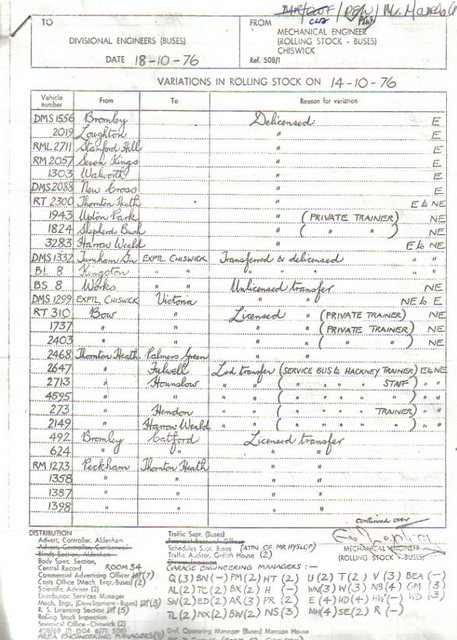 TO
DIVISIONAL ENGINEERS (BUSES)
DATE 18-10-76
FROM
MECHANICAL ENGINEER
(ROLLING STOCK - BUSES)
CHISWICK
Ref. 508/1
VARIATIONS IN ROLLING STOCK ON 14-10-76
Vehicle number From To Reason for variation
DMS 1556 Bromley Delicensed E
2019 Loughton " E
RML 2711 Stamford Hill " E
RM 2057 Seven Kings " E
1303 Walworth " E
DMS 2088 New Cross " E
RT 2300 Thornton Heath " E to NE
1943 Upton Park " (PRIVATE TRAINER) NE
1824 Shepherd Bush " ( " " ) NE
3283 Harrow Weald " E to NE
DMS 1332 Turnham Grn EXPTL CHISWICK Transferred & delicensed " "
BL 8 Kingston " " " " "
BS 8 Works " Unlicensed transfer NE
DMS 1299 EXPTL CHISWICK Victoria " " NE to E
RT 310 Bow " Licensed " (PRIVATE TRAINER) NE
1737 " " " " (PRIVATE TRAINER) NE
2403 " " " " NE
2468 Thornton Heath Palmers Green " "
2647 " Fulwell Lcd transfer (SERVICE BUS to HACKNEY TRAINER) E to NE
2713 " Hounslow " " ( " " " STAFF " ) " "
4595 " " " " ( " " " " " ) " "
273 " Hendon " " ( " " " TRAINER ) " "
2149 " Harrow Weald " " ( " " " " ) " "
492 Bromley Catford Licensed transfer
624 " " " "
RM 1273 Peckham Thornton Heath " "
1358 " " " "
1387 " " " "
1398 " " " "
continued over
MECHANICAL ENGINEER
(ROLLING STOCK - BUSES)
DISTRIBUTION
Advert. Controller, Aldenham
Body Spec. Section,
Central Record ROOM 54
Commercial Advertising Officer (7)
Costs Office (Mech. Engr. Buses) (2)
Scientific Adviser (2)
Distribution Services Manager
Mech. Engr. (Development - Buses) (3)
R. S. Licensing Section (5)
R. S. Records Section
Technical Office, Chiswick (2)
AREA ENGINEERING MANAGERS
Traffic Supt. (Buses)
Schedules Supt. Buses (ATN OF MR HYSLOP)
Traffic Auditor, Griffith House (2)
GARAGE ENGINEERING MANAGERS :-
Q (3) BN (-) PM (2) HT (2) U (2) T (2) V (3) BEA (-)
AL (2) TC (2) BX (2) H (-) WN (3) W (3) NB (4) CM (3)
SW (2) ED (2) AR (3) PR (2) E (4) HD (4) HW (-) WD (3)
TL (2) NX (2) BW (2) NS (3) MH (4) SE (2) R (-)
Div. Operating Manager (Buses) Mansion House